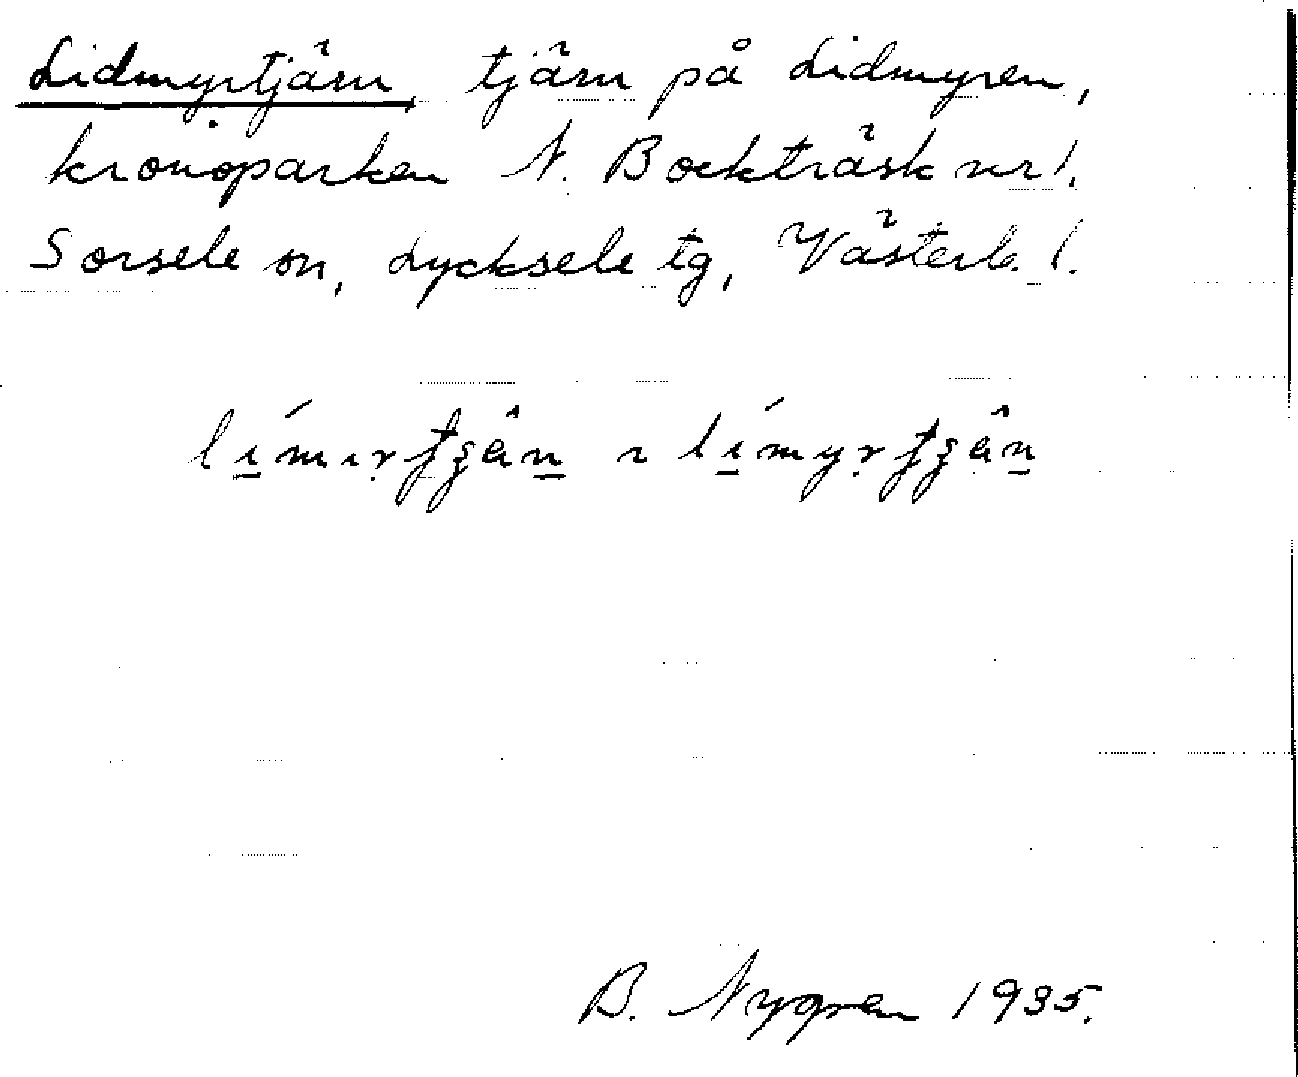 Lidmyrtjärn, tjärn på Lidmyren,
kronoparken N. Bockträsk nr 1.
Sorsele sn, Lycksele tg, Västerb. l.
B. Nygren 1935.